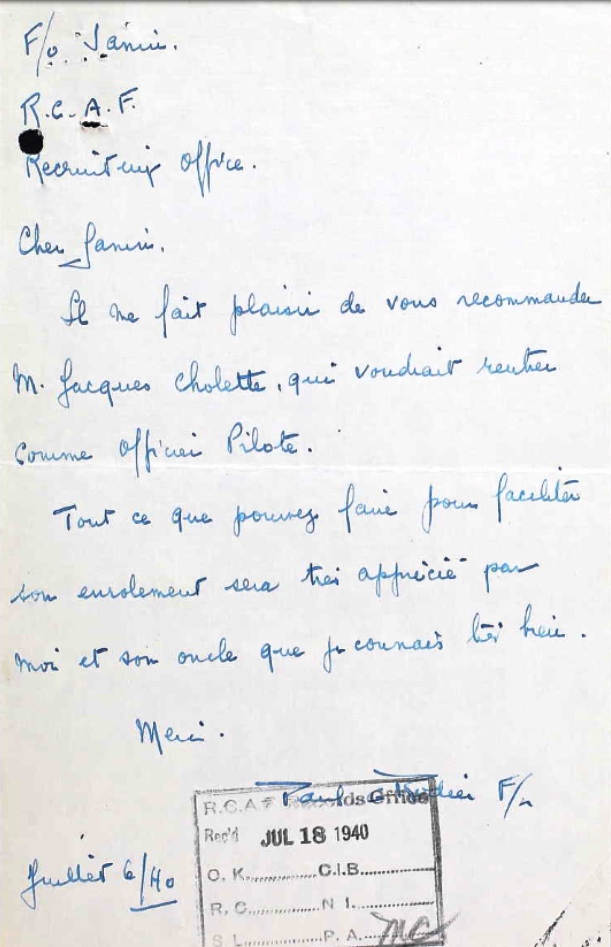 F/o Janin.
R.C.A.F.
Recruiting Office.
Cher Janin.
Il me fait plaisir de vous recommander
M. Jacques Cholette, qui voudrait rentrer
comme Officier Pilote.
Tout ce que pouvez faire pour faciliter
son enrolement sera très apprécié par
moi et son oncle que je connais très bien.
Merci.
Paul
R.C.A.F Records Office
Rec'd JUL 18 1940
O. K. C.I.B.
R. C. N I.
S L. P. A.
Juillet 6/40